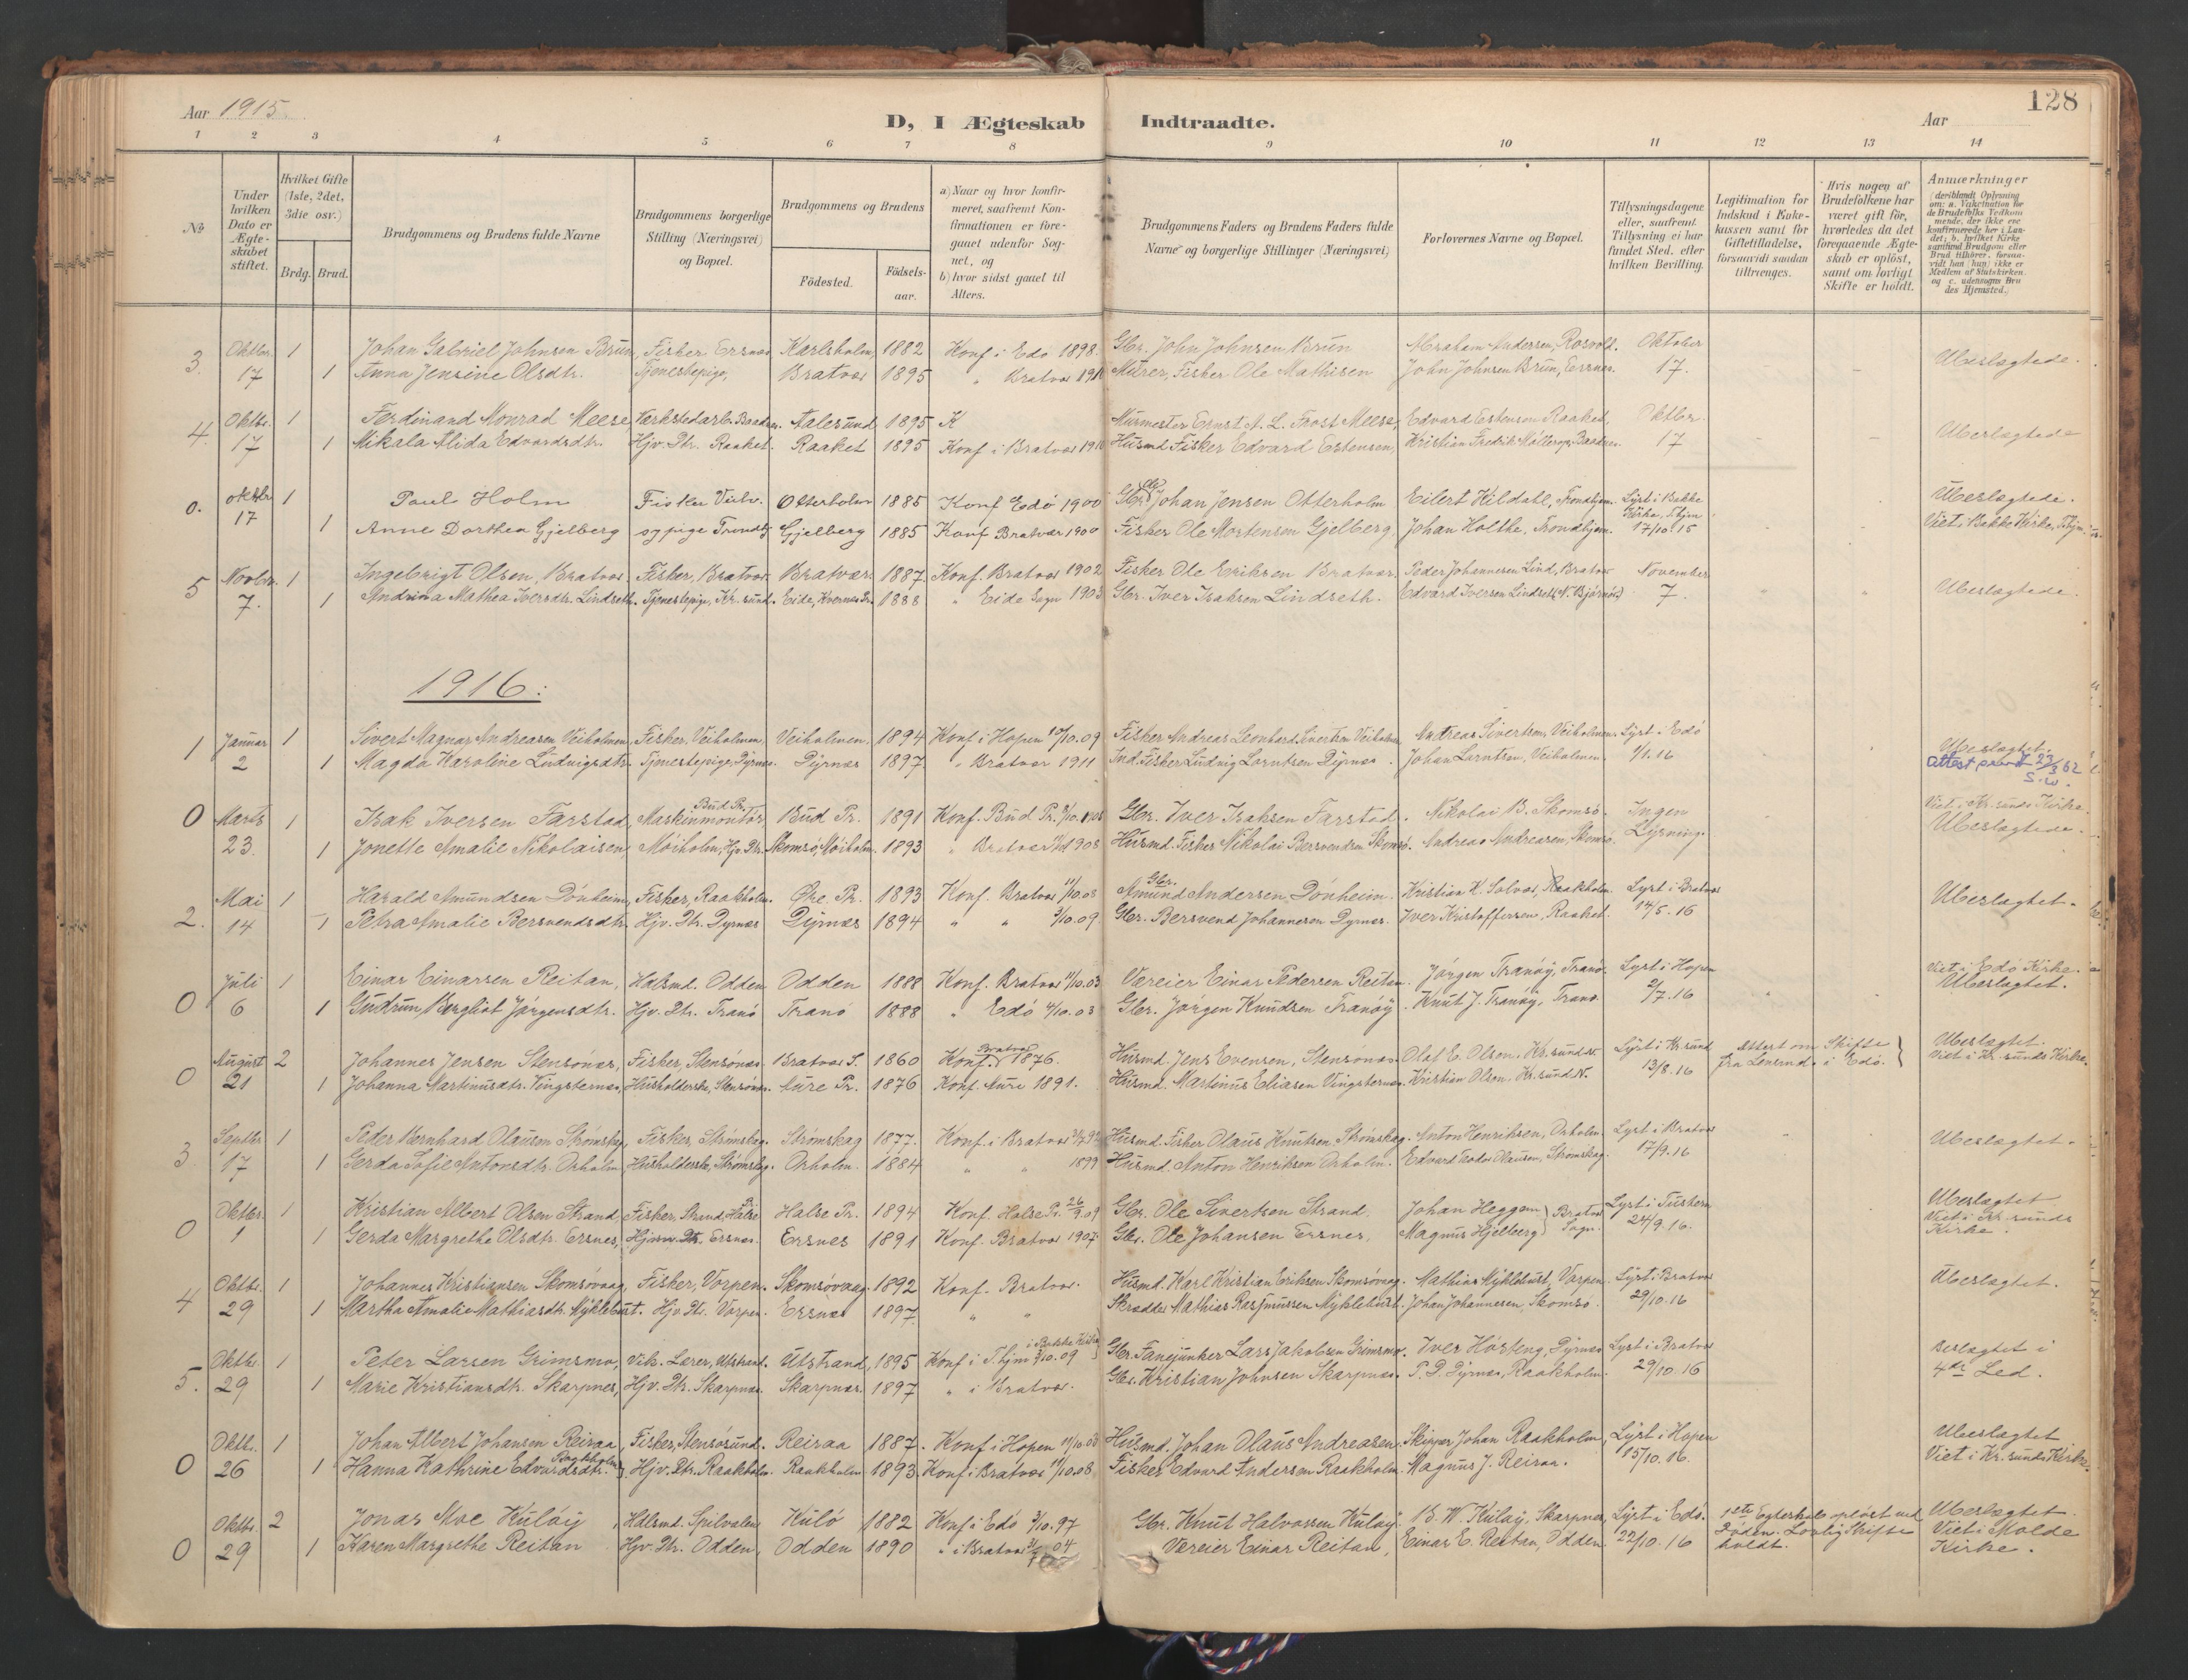 Aar 1915. D, I Ægteskab Indtraadte. Aar 128
1 2 3 4 5 6 7 8 9 10 11 12 13 14
No
Under hvilken Dato er Ægteskabet stiftet.
Hvilket Gifte (1ste, 2det, 3die osv.)
Brdg. Brud.
Brudgommens og Brudens fulde Navne
Brudgommens borgerlige Stilling (Næringsvei) og Bopæl.
Brudgommens og Brudens
Födested. Födselsaar.
a) Naar og hvor konfirmeret, saafremt Konfirmationen er foregaaet udenfor Sognet, og
b) hvor sidst gaaet til Alters.
Brudgommens Faders og Brudens Faders fulde Navne og borgerlige Stillinger (Næringsvei)
Forlovernes Navne og Bopæl.
Tillysningsdagene eller, saafremt Tillysning ei har fundet Sted, efter hvilken Bevilling.
Legitimation for Indskud i Enkekassen samt for Giftetilladelse, forsaavidt saadan tiltrænges.
Hvis nogen af Brudefolkene har været gift för, hvorledes da det foregaaende Ægteskab er oplöst, samt om lovligt Skifte er holdt.
Anmærkninger
(deriblandt Oplysning om: a. Vakcination for de Brudefolks Vedkommende, der ikke ere konfirmerede her i Landet; b. hvilket Kirkesamfund Brudgom eller Brud tilhører, forsaavidt han (hun) ikke er Medlem af Statskirken. og c. udensogns Brudes Hjemsted.)
3. Oktbr. 1 Johan Gabriel Johnsen Brun, Fisker Ersnes Karlsholm, 1882 Konf i Edö 1898. Gbr. John Johnsen Brun Abraham Andersen, Rosvold. Oktober
17 1 Anna Jensine Olsdtr. Tjenestepige, Bratvær 1895 " Bratvær Murer, Fisker Ole Mathisen John Johnsen Brun, Ersnes. 17. Ubeslægtede.
4. Oktbr. 1 Ferdinand Monrad Meese, Aalesund 1895 K Murmester Ernst A. L. Frost Meese, Edvard Estensen Raaket, Oktbr.
17 1 Mikala Alida Edvardsdtr. Hjv. Dtr. Raaket. Raaket 1895 Konf i Bratvær 1910 Husmd. Fisker Edvard Estensen, Kristian Fredrik 17 Ubeslægtede
0. Oktbr 1 Paul Holm Fisker Otterholm 1885 Konf Edö 1900 Gbr. Ole Johan Jensen Otterholm Eilert Hildall, Trondhjem. Lyst i Bakke Kirke, Thjm Ubeslægtede.
17 1 Anne Dorthea Gjelberg og pige Gjelberg 1885 Konf Bratvær 1900 Fisker Ole Mortensen Gjelberg. Johan Holthe, Trondhjem. 17/10. 15 Viet i Bakke Kirke, Thjm.
5 Novbr. 1 Ingebrigt Olsen, Bratvær. Fisker, Bratvær. Bratvær. 1887. Konf. Bratvær 1902 Fisker Ole Eriksen Bratvær. Peder Johannesen Lind, Bratvær November
7. 1 Andrina Mathea Iversdtr. Lindseth. Tjenestepige, Kr.sund. Eide, Kvernes Pr. 1888 " Eide Sogn 1903 Gbr. Iver Isaksen Lindseth. Edvard Iversen Lindseth 7. Ubeslægtede.
1916:
1 Januar 1 Sivert Magnus Andreasen Veiholmen, Fisker, Veiholmen, Veiholmen. 1894 Konf i Hopen 10/10.09 Fisker Andreas Leonhard Sivertsen Veiholmen Andreas Sivertsen, Veiholmen. Lyst i Edö
2 1 Magda Karoline Ludvigsdtr. Tjenestepige, Dyrnes. Dyrnes 1897 " Bratvær 1911 Ind. Fisker Ludvig Larntsen Dyrnes. Johan Larntsen, Veiholmen. 1/1. 16 Ubeslægtet.
Attest 23/3 62
0 Marts 1 Isak Iversen Farstad, Maskinmontör, Bud Pr. Bud Pr. 1891 Konf. Bud Pr. Gbr. Iver Isaksen Farstad. Nikolai B. Skomsö. Ingen Viet i Kr.sunds Kirke.
23. 1 Jonette Amalie Nikolaisen, Möiholm, Hjv. Dtr. Skomsö, Möiholm. 1893 " Bratvær 1908 Husmd. Fisker Nikolai Bersvendsen Skomsö. Andreas Andreasen, Skomsö. Lysning. Ubeslægtede.
2. Mai 1 Harald Amundsen Dönheim, Fisker, Raakholm. Øre Pr. 1893 Konf. Bratvær 11/10.08 Gbr. Amund Andersen, Dönheim. Kristian K. Solvær, Raakholm. Lyst i Bratvær Ubeslægtet.
14 1 Petra Amalie Bersvendsdtr. Hjv. Dtr. Dyrnes Dyrnes 1894 " " 3/10.09. Gbr. Bersvend Johannesen Dyrnes. Iver Kristoffersen, Raaket. 14/5. 16
0 Juli 1 Einar Einarsen Reitan, Hdlsmd. Odden Odden 1888 Konf. Bratvær 11/10.03 Væreier Einar Pedersen Reitan. Jörgen Tranöy, Tranö. Lyst i Hopen Viet i Edö Kirke.
6 1 Gudrun Bergliot Jörgensdtr. Hjv. Dtr. Tranö Tranö 1888 " Edö 4/10.03 Gbr. Jörgen Knudsen Tranöy. Knut J. Tranöy, Tranö. 2/7. 16 Ubeslægtet.
0 August 2 Johannes Jensen Stensönes, Fisker, Stensönes. Bratvær S. 1860 Konf. Bratvær 1876. Husmd. Jens Evensen, Stensönes. Olaf E. Olsen, Kr.sund N. Lyst i Kr.sund Attest om Skifte Ubeslægtet.
21 1 Johanna Martinusdtr. Vingsternes, Husholderske, Stensönes. Aure Pr. 1876 Konf. Aure 1891. Husmd. Martinus Eliasen Vingsternes. Kristian Olsen, Kr.sund N. 13/8. 16 fra Lensmd. i Edö. Viet i Kr.sunds Kirke.
3 Septbr 1 Peder Bernhard Olausen Strömskag, Fisker, Strömskag. Strömskag 1877. Konf. i Bratvær Husmd. Fisker Olaus Knutsen Strömskag. Anton Henriksen, Orholm. Lyst i Bratvær Ubeslægtet.
17 1 Gerda Sofie Antonsdtr. Orholm, Husholderske, Strömskag. Orholm. 1884 " " 1899 Husmd. Anton Henriksen Orholm. Edvard Teodor Olausen, Strömskag. 17/9. 16
0 Oktbr. 1 Kristian Albert Olsen Strand, Fisker, Strand, Halse Pr Halse Pr. 1894 Konf. Halse Pr. 26/9.09 Gbr. Ole Sivertsen Strand. Johan Heggem } Bratvær Lyst i Tustern Ubeslægtet
1 1 Gerda Margrethe Olsdtr. Ersnes, Hjv. Dtr. Ersnes. Ersnes 1891 Konf. Bratvær 1907. Gbr. Ole Johansen Ersnes. Magnus Hjelberg } Sogn. 24/9. 16. Viet i Kr.sunds Kirke.
4 Oktbr. 1 Johannes Kristiansen Skomsövaag, Fisker, Vorpen. Skomsövaag. 1892 Konf. Bratvær. Husmd. Karl Kristian Eriksen Skomsövaag. Mathias Myklebust, Vorpen. Lyst i Bratvær Ubeslægtet.
29 1 Martha Amalie Mathiasdtr. Myklebust. Hjv. Dtr. Vorpen. Ersnes 1897. " " Skrædder Mathias Rasmussen Myklebust. Johan Johannesen, Skomsö. 29/10. 16
5. Oktbr. 1 Peter Larsen Grimsmo, Vik. Lærer, Utstrand. Utstrand, 1895 Konf i Thjm i Bakke Kirke 3/10. 09 Gbr. Fanejunker Lars Jakobsen Grimsmo. Iver Hösteng, Dyrnes Lyst i Bratvær Beslægtet i
29 1 Marie Kristiansdtr. Skarpnes, Hjv. Dtr. Skarpnes. Skarpnes. 1897 " i Bratvær. Gbr. Kristian Johnsen Skarpnes. P. D. Dyrnes, Raakholm. 29/10. 16 4de Led.
0 Oktbr. 1 Johan Albert Johansen Reiraa, Fisker, Stensösund. Reiraa 1887. Konf. i Hopen Husmd. Johan Olaus Andreasen. Skipper Johan Raakholm, Lyst i Hopen Ubeslægtet
26 1 Hanna Kathrine Edvardsdtr. Raakholm, Hjv. Dtr. Raakholm. Raakholm 1893. Konf i Bratvær 11/10.08 Fisker Edvard Andersen Raakholm. Magnus J. Reiraa. 15/10. 16. Viet i Kr.sunds Kirke.
0 Oktbr. 2 Jonas Moe Kulöy, Hdlsmd. Spilvalen Kulö 1882 Konf i Edö 3/10. 97 Gbr. Knut Halvorsen Kulöy B. W. Kulöy, Skarpnes, Lyst i Edö. 1ste Egteskab oplöst ved Ubeslægtet.
29 1 Karen Margrethe Reitan Hjv. Dtr. Odden, Odden 1890 " i Bratvær 04 Væreier Einar Reitan, Einar E. Reitan, Odden. 22/10. 16 Döden. Lovlig Skifte holdt. Viet i Molde Kirke.